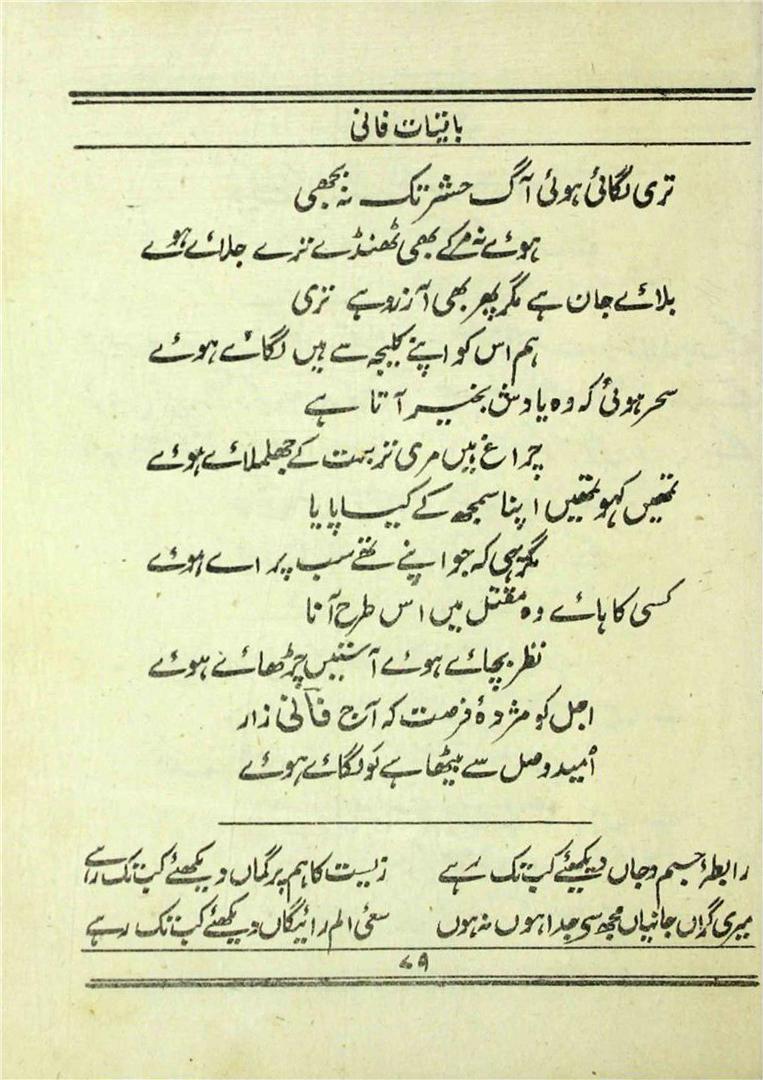 باقیات فانی
تری لگائی ہوئی آگ حشر تک نہ بجھی
ہوئے نہ مر کے بھی ٹھنڈے ترے جلائے ہوئے
بلائے جان ہے مگر پھر بھی آرزو ہے تری
ہم اس کو اپنے کلیجہ سے ہیں لگائے ہوئے
سحر ہوئی کہ وہ یادش بخیر آتا ہے
چراغ ہیں مری تربت کے جھلملائے ہوئے
تمھیں کہو تمھیں اپنا سمجھ کے کیا پایا
مگر یہی کہ جو اپنے تھے سب پرائے ہوئے
کسی کا ہائے وہ مقتل میں اس طرح آنا
نظر بچائے ہوئے آستیں چڑھائے ہوئے
اجل کو مژدۂ فرصت کہ آج فانی زار
اُمید وصل سے بیٹھا ہے لَو لگائے ہوئے
رابطۂ جسم و جاں دیکھئے کب تک رہے زیست کا ہم پر گماں دیکھئے کب تک رہے
میری گراں جانیاں مجھ سی جدا ہوں نہ ہوں سعی الم رائیگاں دیکھئے کب تک رہے
۷۹